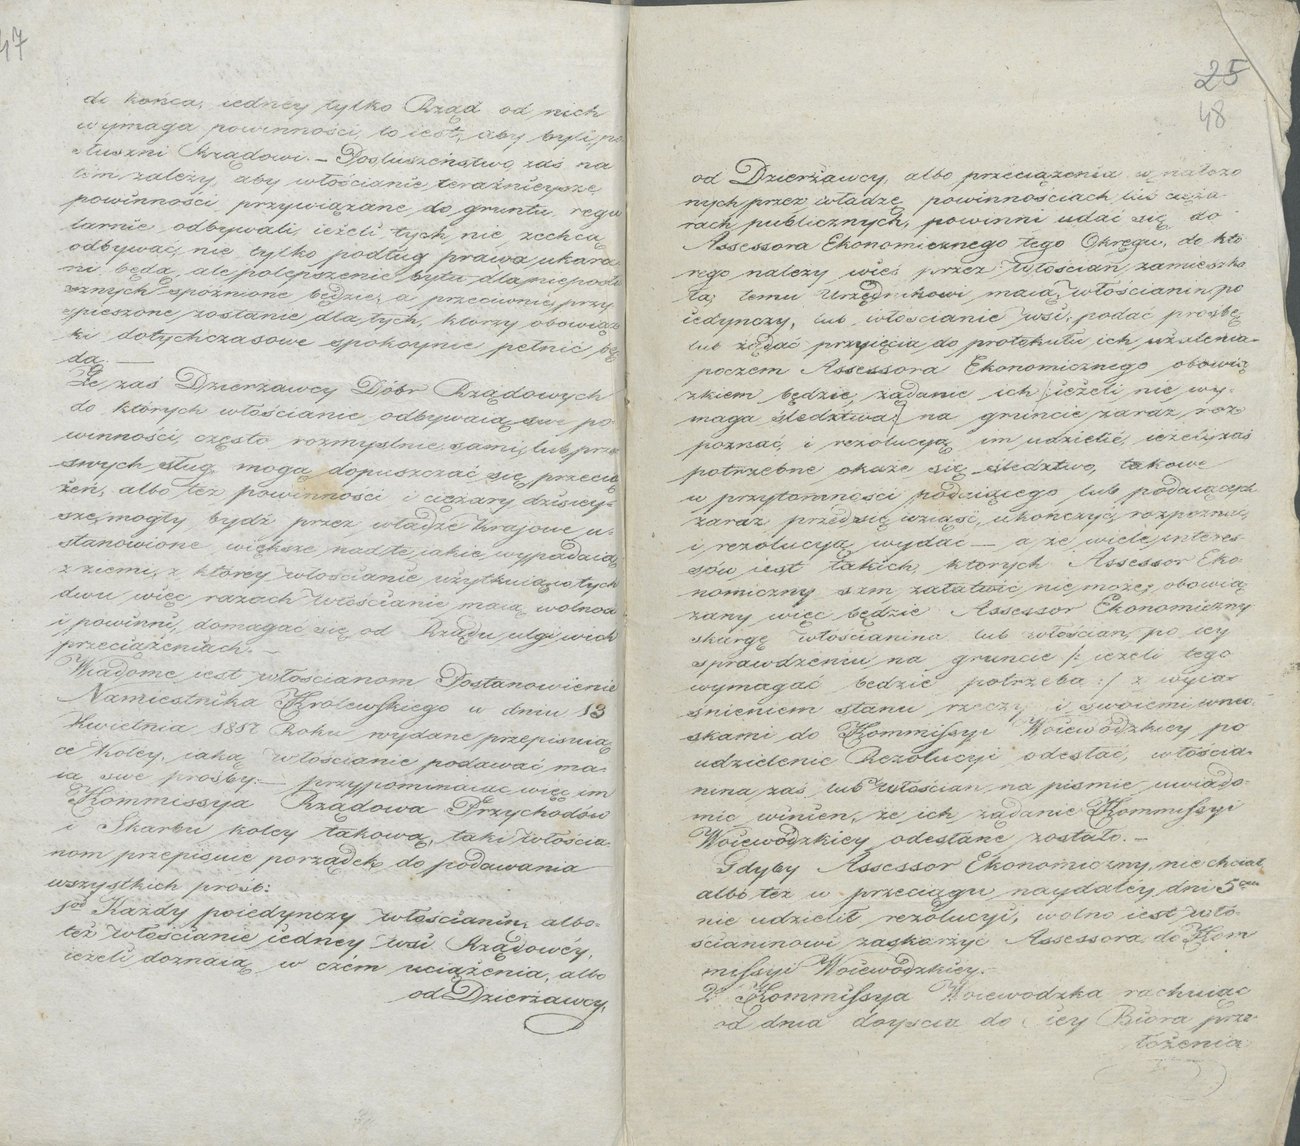 47
do końca, iedney tylko Rząd od nich
wymaga powinności, to iest, aby byli po
słuszni Rządowi. – Posłuszeństwo zaś na
tém zależy, aby włościanie teraźnieysze
powinności przywiązane do gruntu regu
larnie odbywali, ieżeli tych nie zechcą
odbywać, nie tylko podług prawa ukara
ni będą, ale polepszenie bytu dla nieposłu
sznych spóźnione będzie, a przeciwnie przy
spieszone zostanie dla tych, którzy obowiąz
ki dotychczasowe spokoynie pełnić bę
dą. —
Że zaś Dzierżawcy Dóbr Rządowych
do których włościanie odbywaią swe po
winności często rozmyślnie sami, lub przez
swych sług mogą dopuszczać się przecią
żeń, albo też powinności i ciężary dzisiey-
sze mogły bydź przez władze kraiowe u-
stanowione większe nad te iakie wypadaią
z ziemi, z którey włościanie użytkuią, w tych
dwu więc razach włościanie maią wolność
i powinni, domagać się od Rządu ulgi w ich
przeciążeniach. —
Wiadome iest włościanom Postanowienie
Namiestnika Królewskiego w dniu 13
Kwietnia 1817 Roku wydane przepisuią
ce koley, iaką włościanie podawać ma-
ią swe prośby. — przypominaiąc więc im
Kommissya Rządowa Przychodów
i Skarbu koley takową, taki włościa-
nom przepisuie porządek do podawania
wszystkich próśb:
1od Każdy poiedynczy włościanin, albo-
też włościanie iedney wsi Rządowéy,
ieżeli doznaią w czém uciążenia, albo
od Dzierżawcy,
25
48
od Dzierżawcy, albo przeciążenia w nałożo
nych przez władzę powinnościach lub cięża-
rach publicznych, powinni udać się do
Assessora Ekonomicznego tego Okręgu, do któ
rego należy wieś przez włościan zamieszka
ła; temu Urzędnikowi maią włościanin po
iedynczy, lub włościanie wsi, podać prośbę
lub żądać przyięcia do protokułu ich użalenia-
poczem Assessora Ekonomicznego obowią
zkiem będzie, żądanie ich /: ieżeli nie wy-
maga śledztwa :/ na gruncie zaraz roz-
poznać, i rezolucyą im udzielić, ieżeli zaś
potrzebne okaże się śledztwo, takowe
w przytomności podaiącego lub podaiących
zaraz przedsięwziąść, ukończyć, rozpoznać,
i rezolucyą wydać — a że wiele interes-
sów iest takich, których Assessor Eko-
nomiczny sam załatwić nie może, obowią
zany więc będzie Assessor Ekonomiczny
skargę włościanina lub włościan, po iey
sprawdzeniu na gruncie /: ieżeli tego
wymagać będzie potrzeba :/ z wyia-
śnieniem stanu rzeczy i swoiemi wnio-
skami do Kommissyi Woiewódzkiey po
udzielenie Rezolucyi odesłać, włościa-
nina zaś lub włościan na piśmie uwiado-
mić winien, że ich żądanie Kommissyi
Woiewódzkiey odesłane zostało. —
Gdyby Assessor Ekonomiczny nie chciał,
albo też w przeciągu naydaley dni 5ciu
nie udzielił rezolucyi, wolno iest wło-
ścianinowi zaskarżyć Assessora do Kom
missyi Woiewódzkiey. —
2o Kommissya Woiewodzka rachuiąc
od dnia doyścia do iey Biura prze-
łożenia